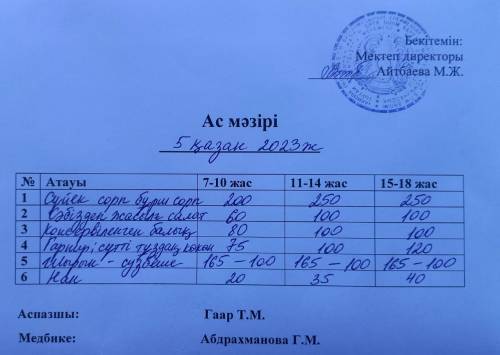 Бекітемін:
Мектеп директоры
Айтбаева М.Ж.
Ас мәзірі
5 қазан 2023ж
№ Атауы 7-10 жас 11-14 жас 15-18 жас
1 Сүйек сорп бұрш сорп 200 250 250
2 Сәбізден жасалғ салат 60 100 100
3 Консервіленген балық 80 100 100
4 Гарнир; сүтті тұздық 75 100 120
5 Шырын - сүзбеше 165 – 100 165 – 100 165 – 100
6 Нан 20 35 40
Аспазшы: Гаар Т.М.
Медбике: Абдрахманова Г.М.